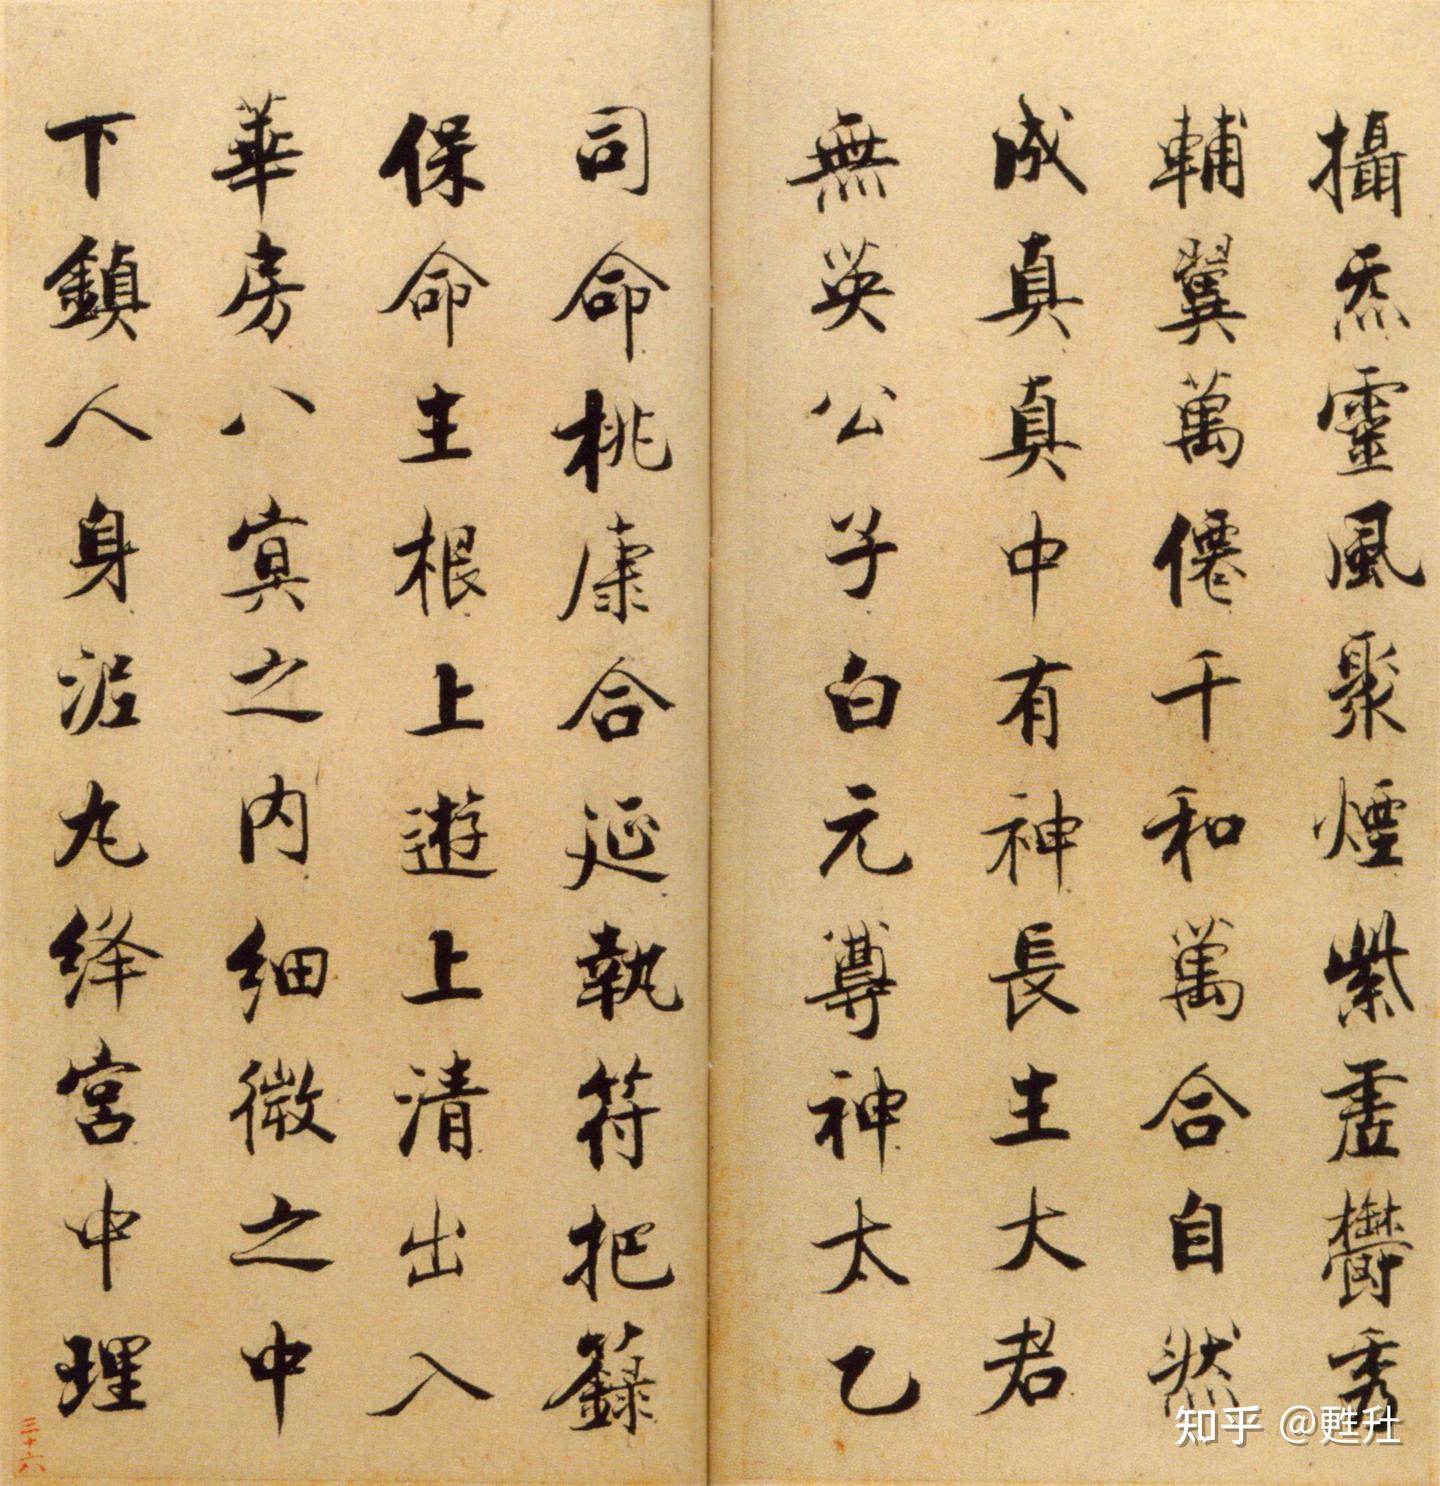 攝炁靈風聚煙紫虛欝秀
輔翼萬僊千和萬合自然
成真真中有神長主大君
無英公子白元尊神太乙
司命桃康合延執符把籙
保命主根上遊上清出入
華房八冥之内細微之中
下鎮人身泥丸絳宮中理
三十六
知乎 @甦社